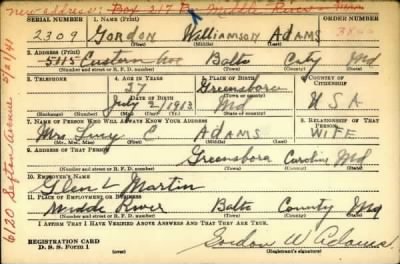 new address: Box 217 Middle River
SERIAL NUMBER 1. NAME (Print) ORDER NUMBER
2309 GORDON Williamson ADAMS
(First) (Middle) (Last)
3. ADDRESS (Print)
5115 Eastern Ave Balto City Md
(Number and street or R. F. D. number) (Town) (County) (State)
3. TELEPHONE 4. AGE IN YEARS 5. PLACE OF BIRTH 6. COUNTRY OF CITIZENSHIP
27 Greensboro
DATE OF BIRTH
July 2, 1913 Md USA
7. NAME OF PERSON WHO WILL ALWAYS KNOW YOUR ADDRESS 8. RELATIONSHIP OF THAT PERSON
Mrs. Lucy C ADAMS WIFE
(Mr., Mrs., Miss) (First) (Middle) (Last)
9. ADDRESS OF THAT PERSON
Greensboro Caroline Md
(Number and street or R. F. D. number) (Town) (County) (State)
10. EMPLOYER'S NAME
Glen L Martin
11. PLACE OF EMPLOYMENT OR BUSINESS
Middle River Balto County Md
(Number and street or R. F. D. number) (Town) (County) (State)
I AFFIRM THAT I HAVE VERIFIED ABOVE ANSWERS AND THAT THEY ARE TRUE.
REGISTRATION CARD
D. S. S. Form 1
Gordon W Adams
6120 Sefton Avenue